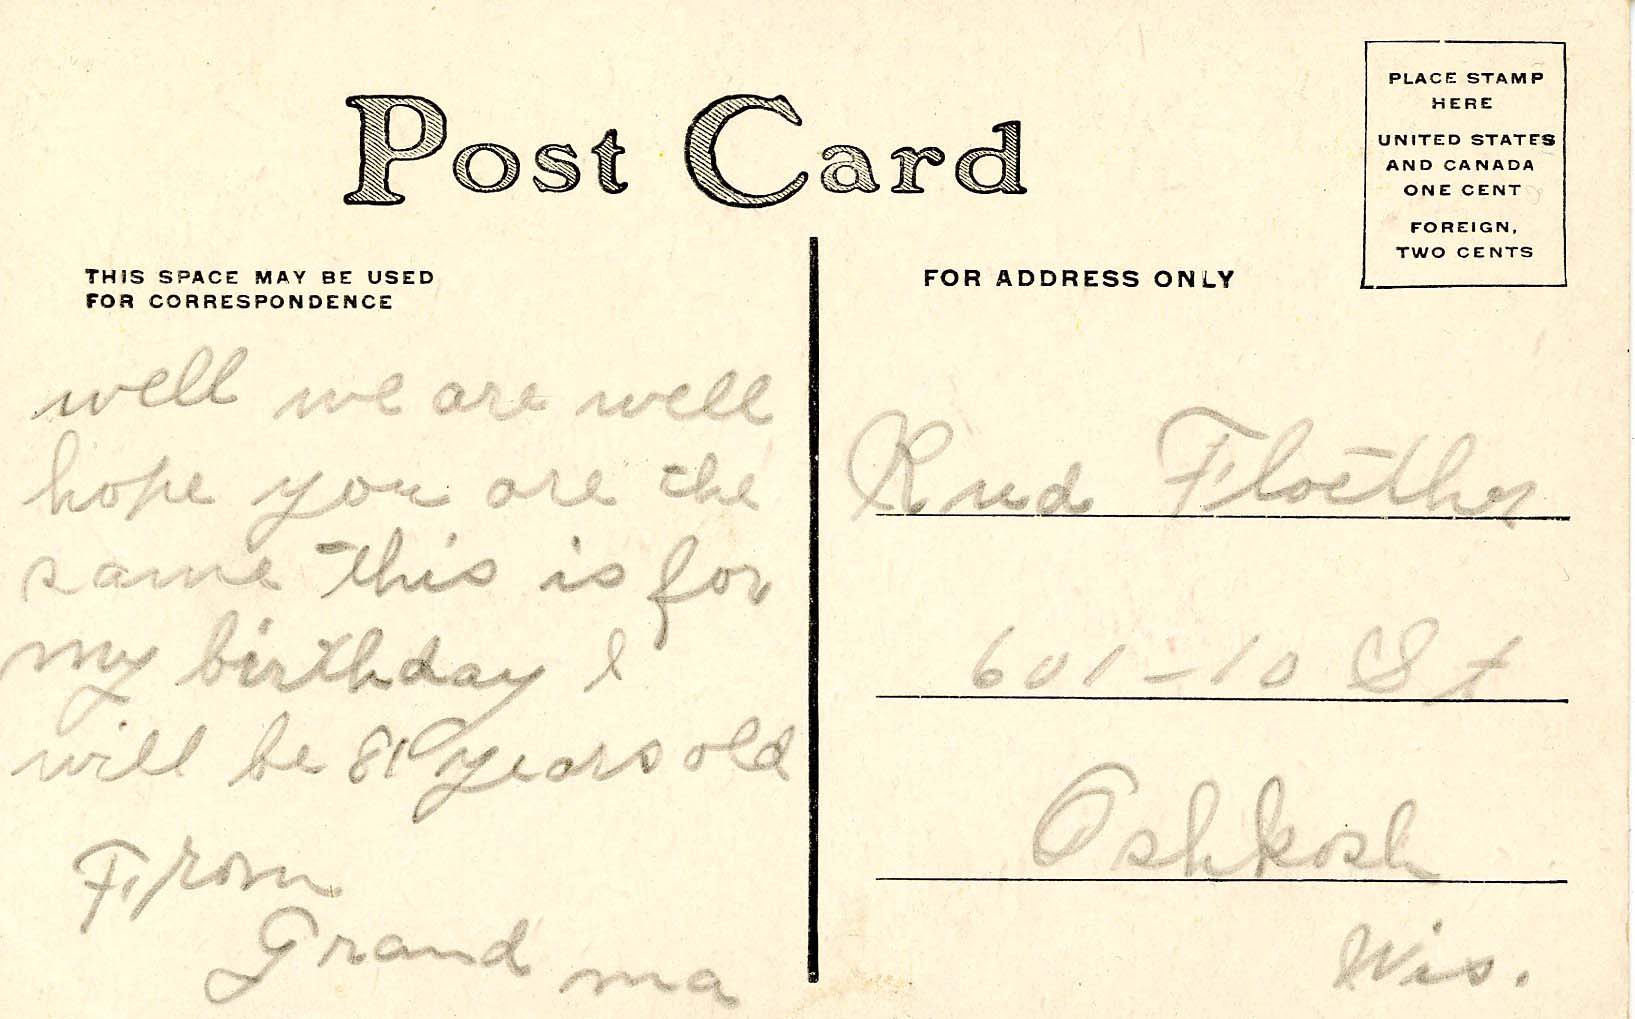 Post Card
PLACE STAMP
HERE
UNITED STATES
AND CANADA
ONE CENT
FOREIGN,
TWO CENTS
THIS SPACE MAY BE USED
FOR CORRESPONDENCE
well we are well
hope you are the
same this is for
my birthday I
will be 81 years old
From
Grand ma
FOR ADDRESS ONLY
Rud Floether
601-10 St
Oshkosh
Wis.